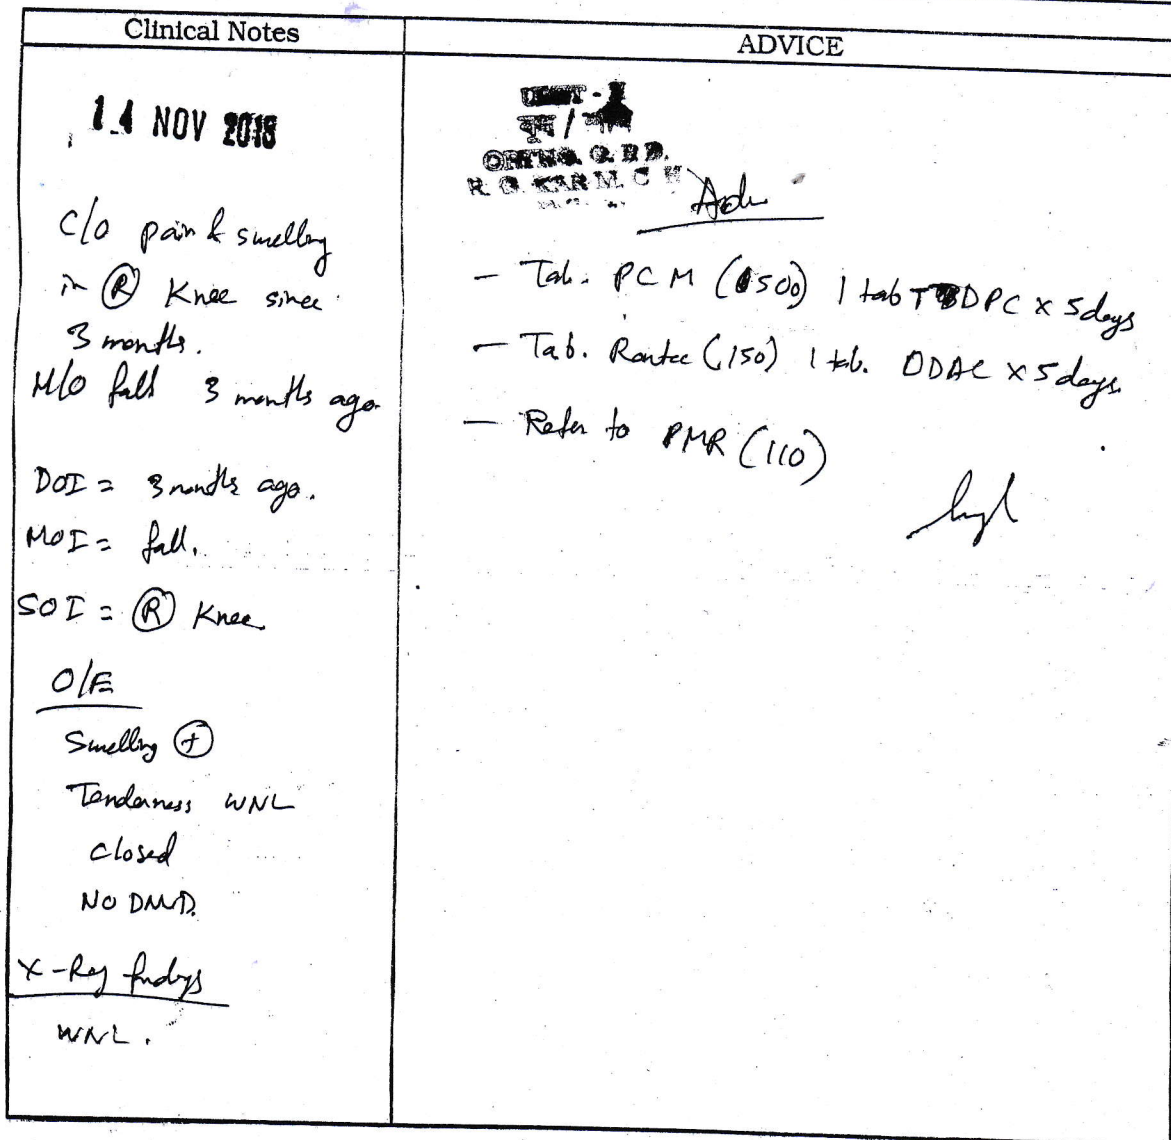 Clinical Notes
ADVICE
14 NOV 2018
C/o pain & swelling
in Ⓡ Knee since
3 months.
H/O fall 3 months ago.
DOI = 3 months ago.
MOI = fall.
SOI = Ⓡ Knee.
O/E
Swelling ⊕
Tenderness WNL
closed
NO DNVD.
X-Ray findings
WNL.
UNIT - II
ORTHO. O. P. D.
R. G. KAR M. C H
Adv
- Tab. PCM (500) 1 tab TDPC x 5 days
- Tab. Rantac (150) 1 tab. ODAC x 5 days.
- Refer to PMR (110)